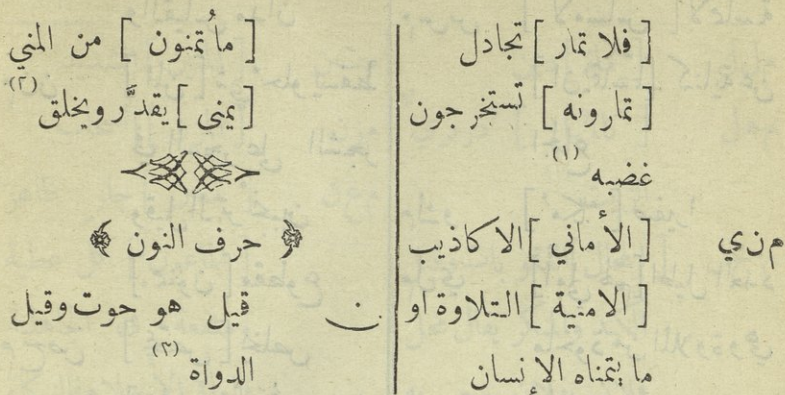 [ فلا تمار ] تجادل
[ تمارونه ] تستخرجون
غضبه (١)
م ن ي [ الأماني ] الاكاذيب
[ الامنية ] التلاوة او
ما يتمناه الإنسان
[ ماتمنون ] من المني
[ يمنى ] يقدَّر ويخلق (٢)
﴿ حرف النون ﴾
ن قيل هو حوت وقيل
الدواة (٣)